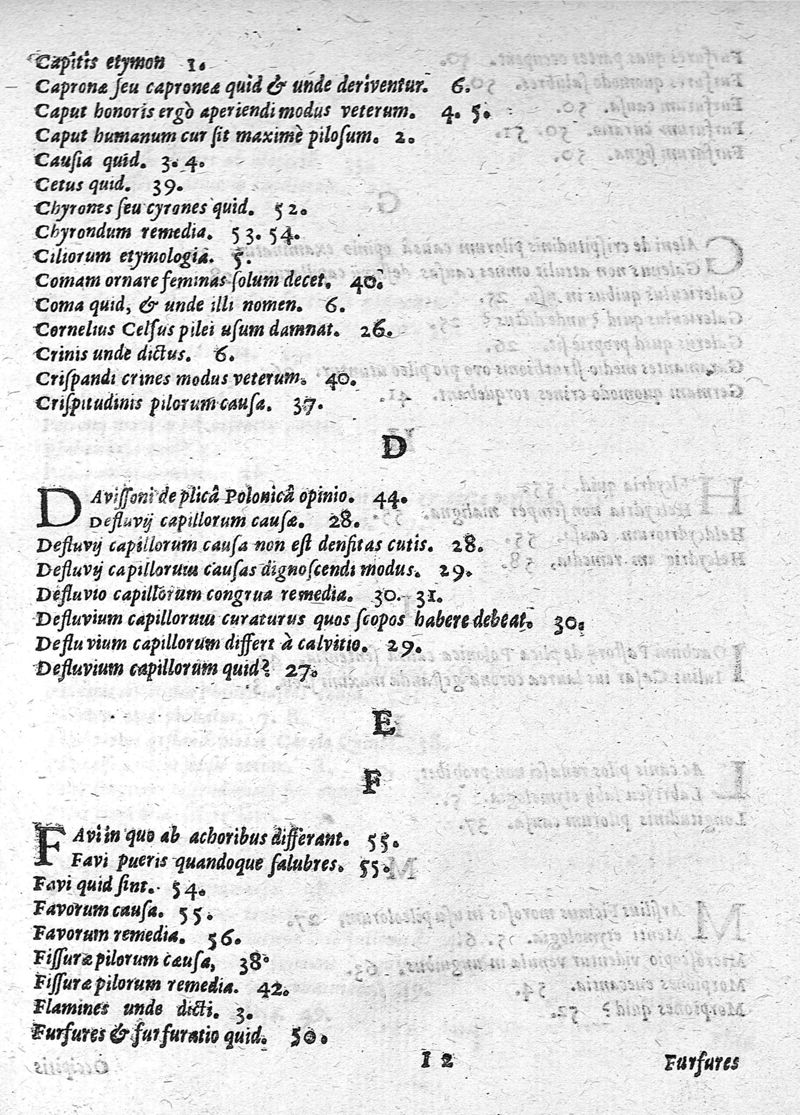 Capitis etymon 1.
Capronæ ſeu caproneæ quid & unde deriventur. 6.
Caput honoris ergò aperiendi modus veterum. 4. 5.
Caput humanum cur ſit maximè piloſum. 2.
Cauſia quid. 3. 4.
Cetus quid. 39.
Chyrones ſeu cyrones quid. 52.
Chyrondum remedia. 53. 54.
Ciliorum etymologia. 5.
Comam ornare feminas ſolum decet. 40.
Coma quid, & unde illi nomen. 6.
Cornelius Celſus pilei uſum damnat. 26.
Crinis unde dictus. 6.
Criſpandi crines modus veterum. 40.
Criſpitudinis pilorum cauſa. 37.
D
DAviſſoni de plicâ Polonicâ opinio. 44.
Defluvij capillorum cauſæ. 28.
Defluvij capillorum cauſa non eſt denſitas cutis. 28.
Defluvij capillorum cauſas dignoſcendi modus. 29.
Defluvio capillorum congrua remedia. 30. 31.
Defluvium capillorum curaturus quos ſcopos habere debeat. 30.
Defluvium capillorum differt à calvitio. 29.
Defluvium capillorum quid? 27.
E
F
FAvi in quo ab achoribus differant. 55.
Favi pueris quandoque ſalubres. 55.
Favi quid ſint. 54.
Favorum cauſa. 55.
Favorum remedia. 56.
Fiſſuræ pilorum cauſa, 38.
Fiſſuræ pilorum remedia. 42.
Flamines unde dicti. 3.
Furfures & furfuratio quid. 50.
I 2 Furfures